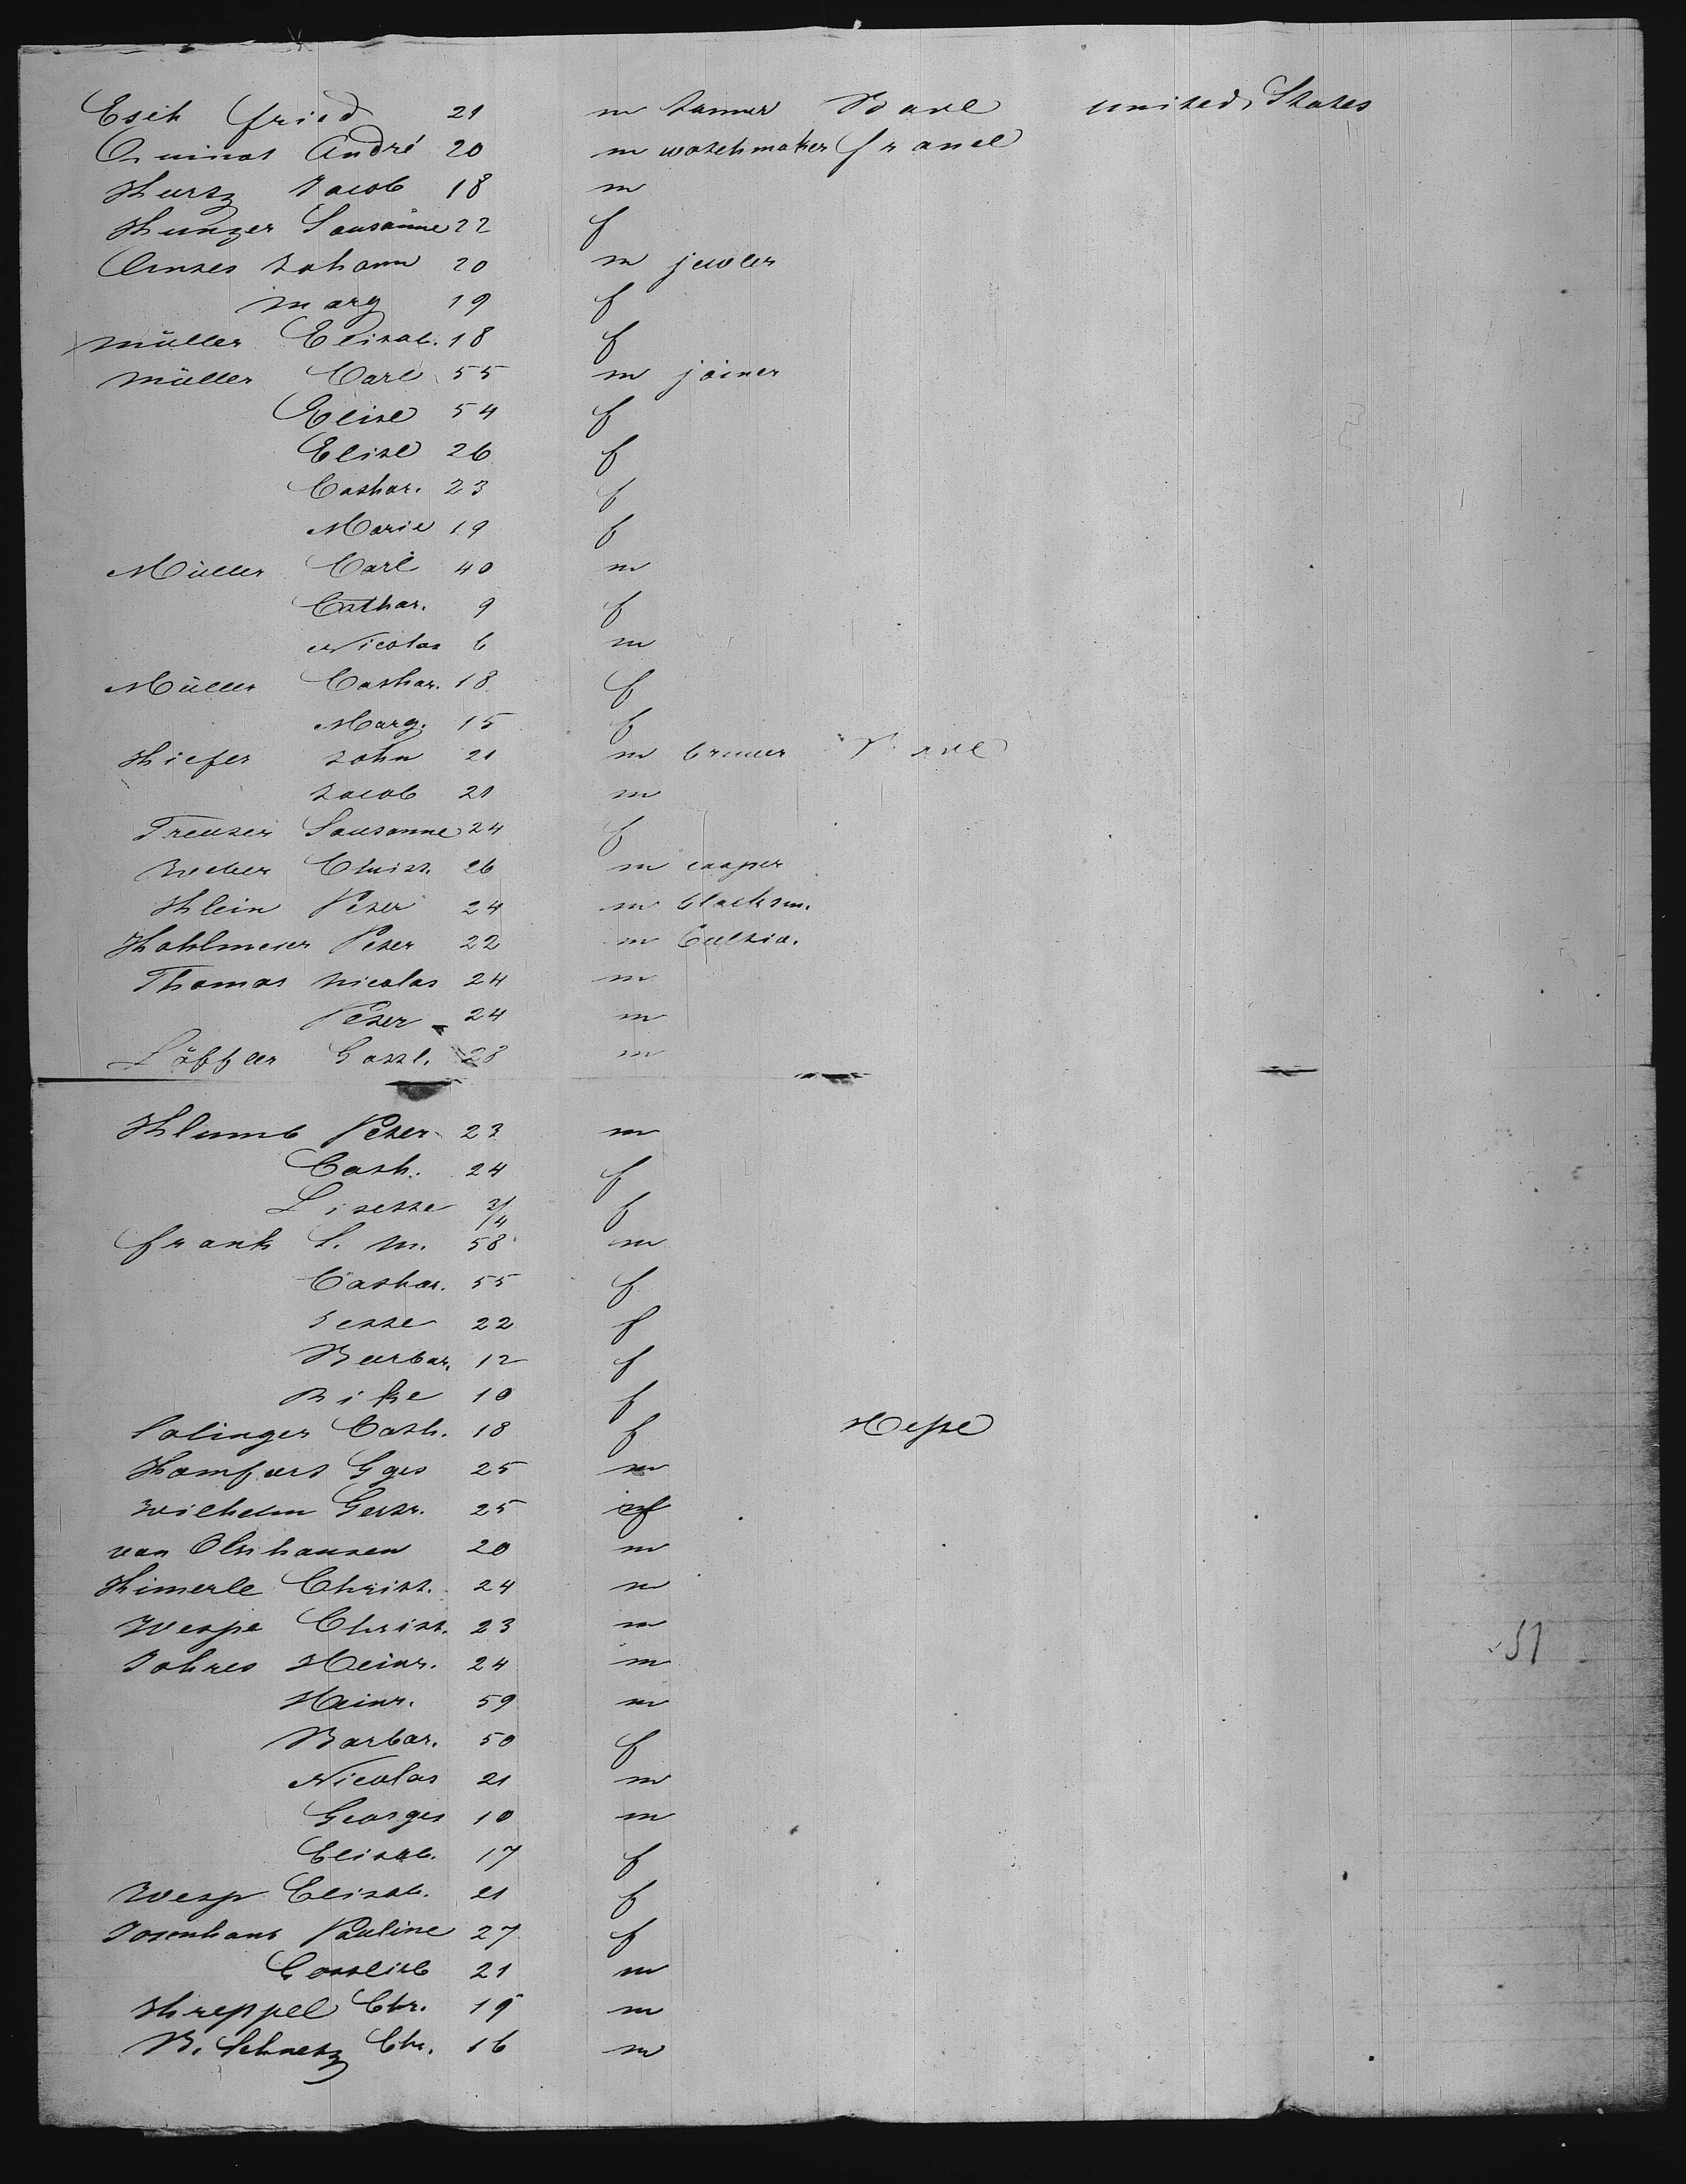 Esch Fried 21 m tanner Bavе united States
Quinot André 20 m watchmaker France
Kurtz Jacob 18 m
Kunzer Sausanne 22 f
Johann 20 m jewler
Marg 19 f
Müller Elisab. 18 f
Müller Carl 55 m joiner
Elise 54 f
Elise 26 f
Cathar. 23 f
Marie 19 f
Müller Carl 40 m
Cathar. 9 f
Nicolas 6 m
Müller Cathar. 18 f
Marg. 15 f
Kiefer John 21 m bruer
Jacob 21 m
Treuser Sausanne 24 f
Weber Christ. 26 m cooper
Klein Peter 24 m blacksm.
Kohlmeier Peter 22 m Cultiv.
Thomas Nicolas 24 m
Peter 24 m
Löffler Gottl. 28 m
Klumb Peter 23 m
Cath. 24 f
Lisette 3/4 f
Frank L. M. 58 m
Cathar. 55 f
Jette 22 f
Barbar. 12 f
Rike 10 f
Salinger Cath. 18 f Hesse
Gges 25 m
Wilhelm Gertr. 25 f
van Olnhausen 20 m
Kimerle Christ. 24 m
Wespe Christ. 23 m
Johres Heinr. 24 m
51
Heinr. 59 m
Barbar. 50 f
Nicolas 21 m
Georges 10 m
Elisab. 17 f
Wesp Elisab. 21 f
Josenhans Pauline 27 f
Gottlieb 21 m
Kreppel Chr. 19 m
B. Schnetz Chr. 16 m